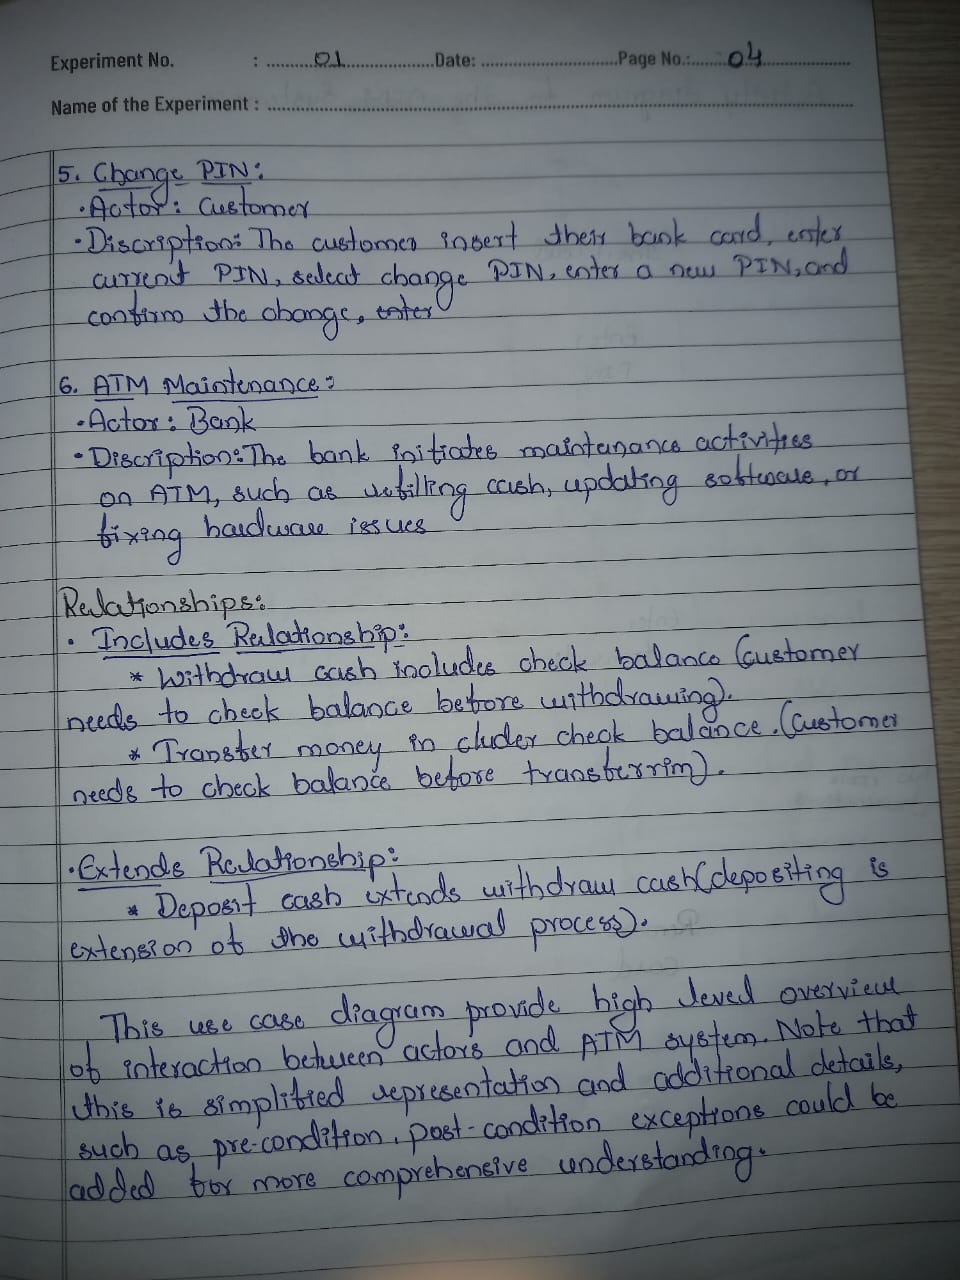 Experiment No. : 01 Date: Page No.: 04
Name of the Experiment :
5. Change PIN:
• Actor: Customer
• Discription: The customer insert their bank card, enter
current PIN, select change PIN, enter a new PIN, and
confirm the change, enter
6. ATM Maintenance:
• Actor: Bank
• Discription: The bank initiates maintenance activities
on ATM, such as refilling cash, updating software, or
fixing hardware issues
Relationships:
• Includes Relationship:
* Withdraw cash includes check balance (customer
needs to check balance before withdrawing).
* Transfer money in cluder check balance. (Customer
needs to check balance before transferrim).
• Extends Relationship:
* Deposit cash extends withdraw cash (depositing is
extension of the withdrawal process).
This use case diagram provide high level overview
of interaction between actors and ATM system. Note that
this is simplified representation and additional details,
such as pre-condition, post-condition exceptions could be
added for more comprehensive understanding.